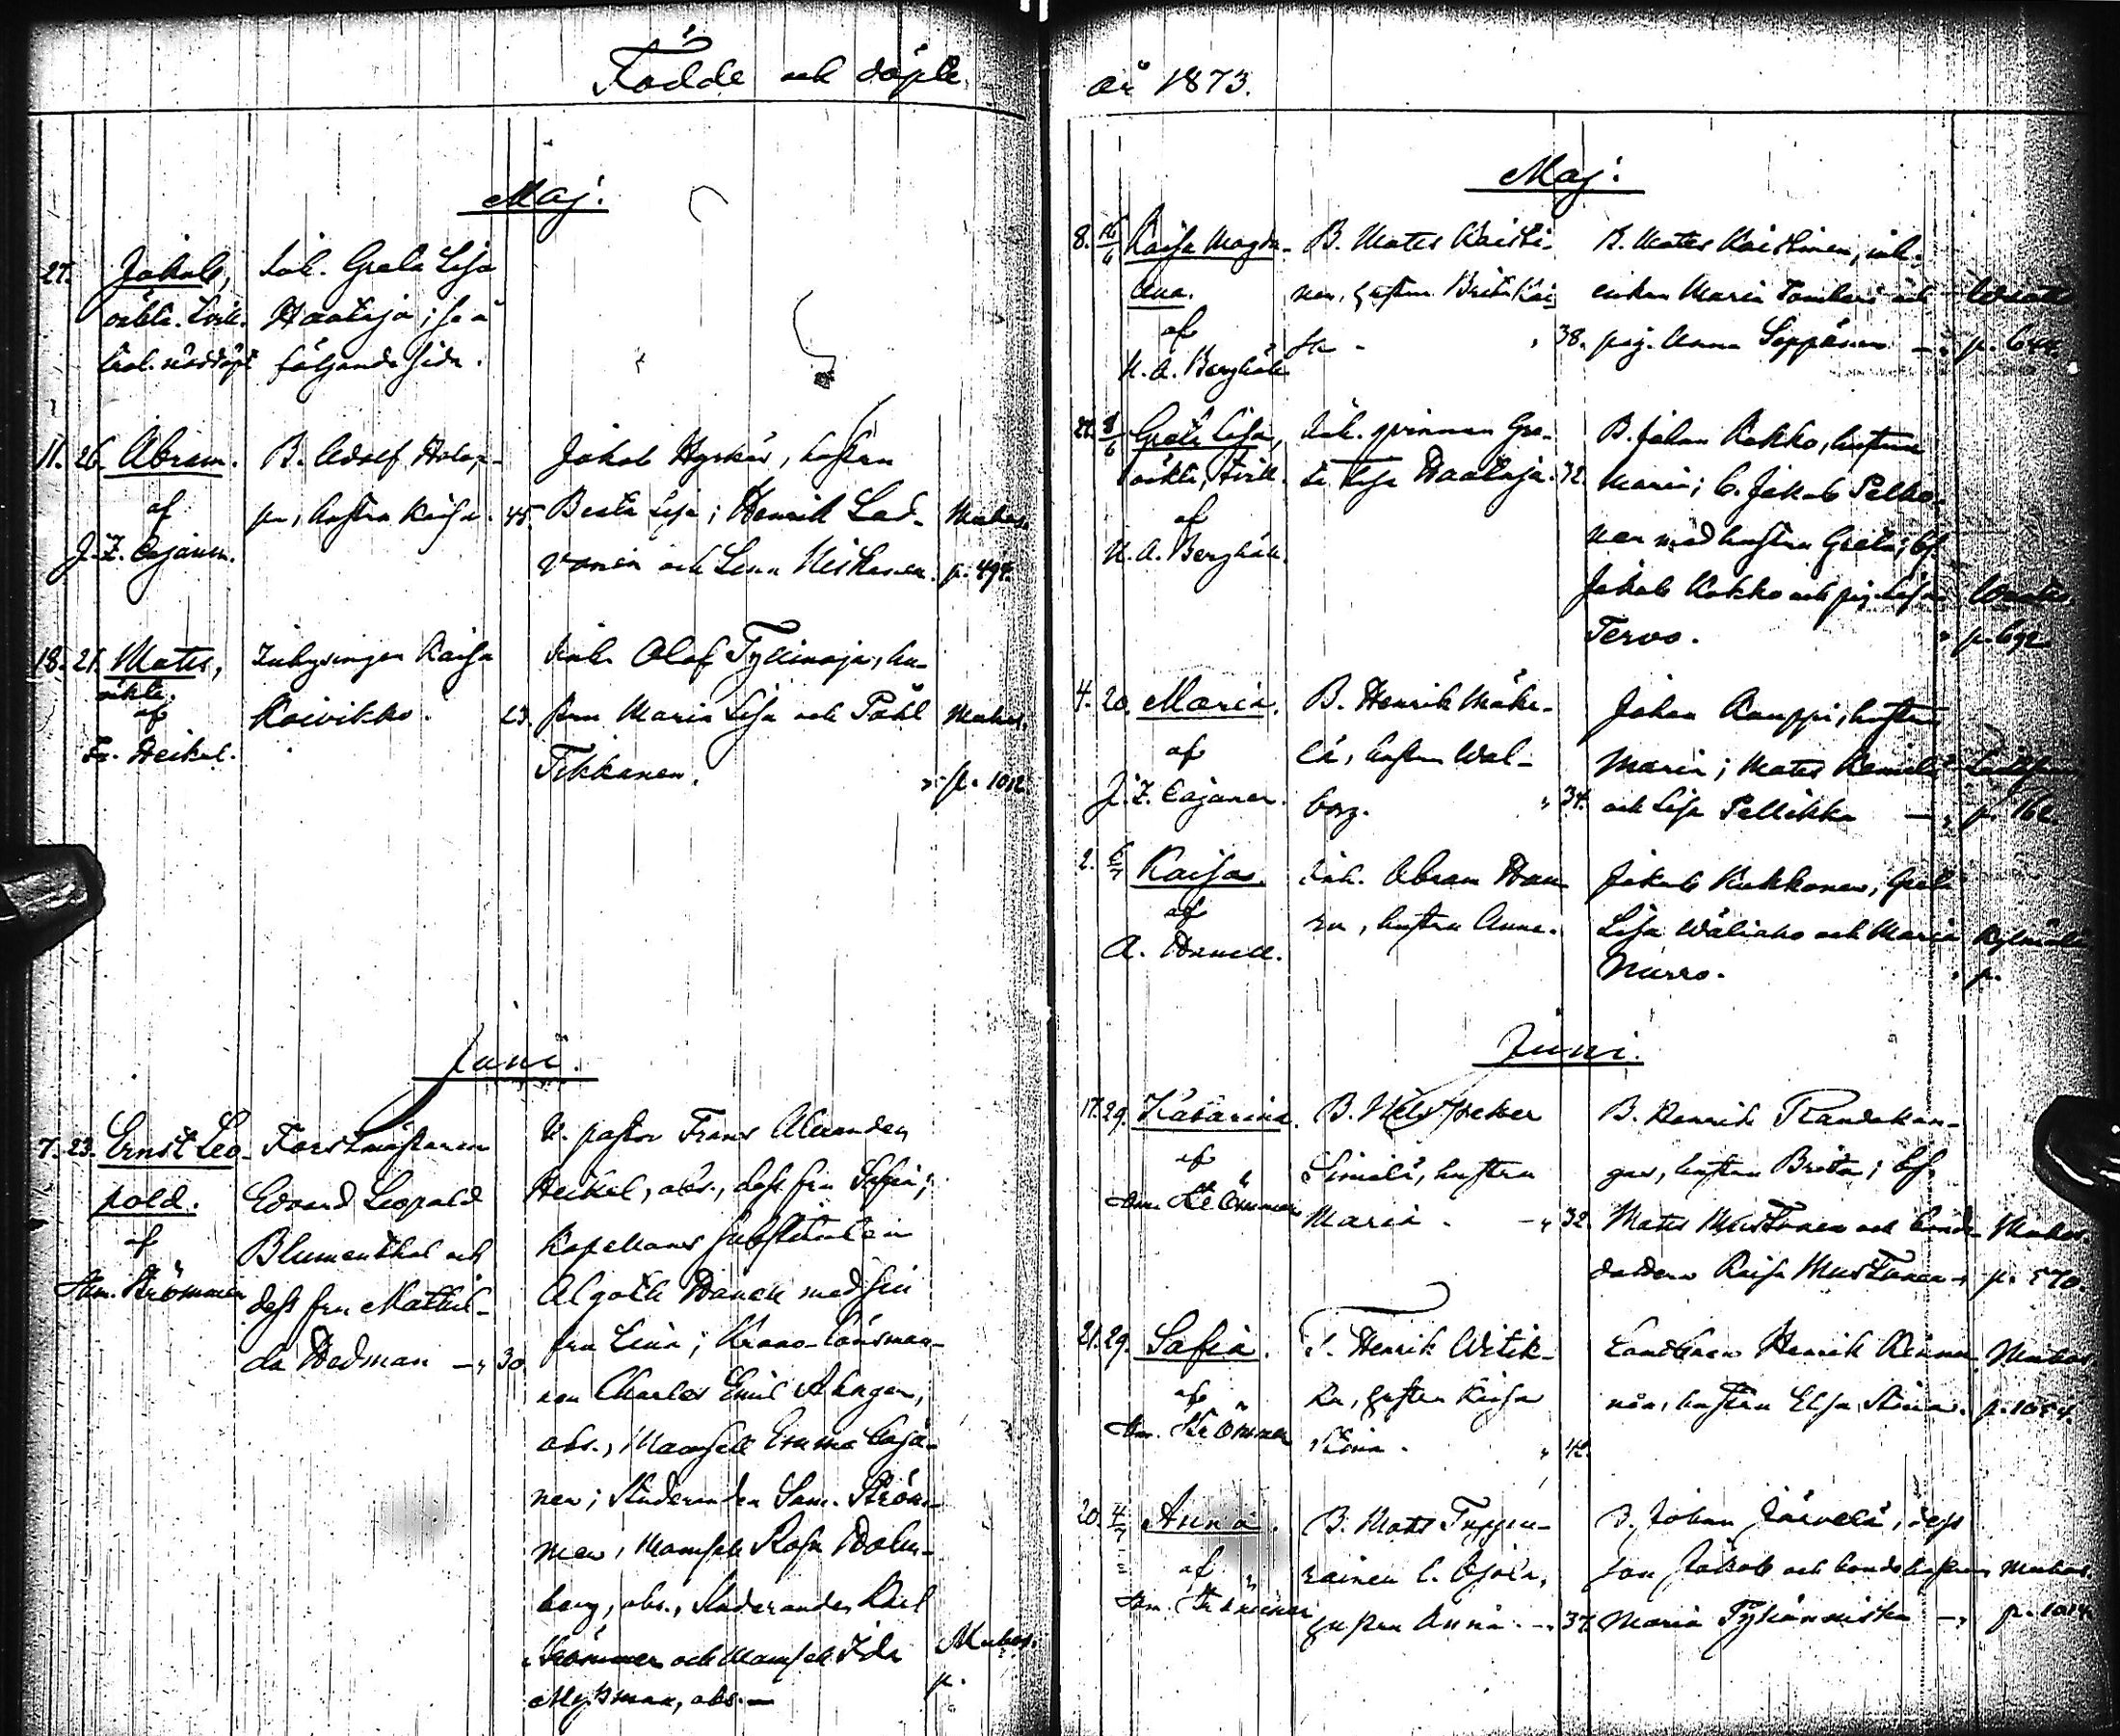 Födde och döpte
år 1873.
Maj.
27. Jakob,
oäkta. tvill.
Inh. Greta Lisa
Haataja; se å
följande sida.
11. 26. Abram.
af
J. F. Cajanen.
B. Adolf Holap-
pa, hustru Kaisa. 45
Jakob Hyrkäs, hustru
Beata Lisa; Henrik Lad-
vanen och Lena Niskanen.
Muhos
p. 494.
18. 21. Mats,
oäkta.
af
Fr. Heikel.
Inhysingen Kaisa
Koivikko. 23.
Inh. Olof Tyllinoja, hu-
stru Maria Lisa och Påhl
Tikkanen.
Muhos
p. 1012
Juni.
7. 23. Ernst Leo-
pold.
af
Sam. Strömmer
Forstmästaren
Edvard Leopold
Blumenthal och
dess fru Mathil-
da Hedman - 30
K. pastor Frans Alexander
Heikel, abs., dess fru Sofia;
Kapellans substituten
Algoth Hanell med sin
fru Lina; Krono-länsman-
nen Charles Emil Ahngren,
abs., Mamsell Emma Caja-
nen; Studeranden Sam. Ström-
mer, Mamsell Rosa Holm-
berg, abs., Studeranden Karl
Strömmer och Mamsell Ida
abs. -
Muhos.
p.
Maj.
8. 15/6 Kaisa Magda-
lena.
af
K. A. Berghäll
B. Mats Kaisti-
nen, hustru Brita Kai
sa - 38.
B. Mats Kaistinen, inh.
enkan Maria och
pig. Anna Seppänen -
p. 644.
22. 8/6 Greta Lisa,
oäkta, tvill.
af
K. A. Berghäll.
Inh. qvinnan Gre-
ta Lisa Haataja. 32.
B. Johan Kokko, hustru
Maria; b. Jakob Pelko-
nen med hustru Greta; bs.
Jakob Kokko och pig. Lisa
Tervo.
p. 692
4. 20. Maria.
af
J. F. Cajanen.
B. Henrik Mäke-
lä, hustru Wal-
borg. 34.
Johan Kauppi, hustru
Maria; Mats
och Lisa Pellikka -
p. 162.
2. 6/7 Kaisa.
af
A. Hanell.
Inh. Abram Hau
ru, hustru Anna.
Jakob Kukkonen, Greta
Lisa Wäliaho och Maria
Nurro.
p.
Juni.
17. 29. Katarina.
af
Sam. Strömmer
B. Nils Petter
Similä, hustru
Maria - 32.
B. Henrik Kandelan-
gas, hustru Brita; bs.
Mats Mustonen och bonde-
dottern Kaisa Mustonen -
Muhos.
p. 570.
21. 29. Sofia.
af
Sam. Strömmer
T. Henrik Witik-
ka, hustru Kaisa
Stina. 42.
Landbonden Henrik
hustru Elsa Stina.
Muhos
20. 4/7 Anna.
af
Sam. Strömmer
B. Mats Tuppu-
rainen l. Ojala,
hustru Anna - 37.
B. Johan Järvelä, dess
son Jakob och bondehustrun
Maria Tyhänniska -
Muhos.
p. 1014